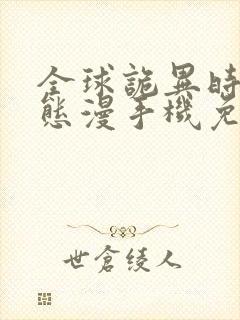 全球詭異時
態漫手機免
世倉綾人